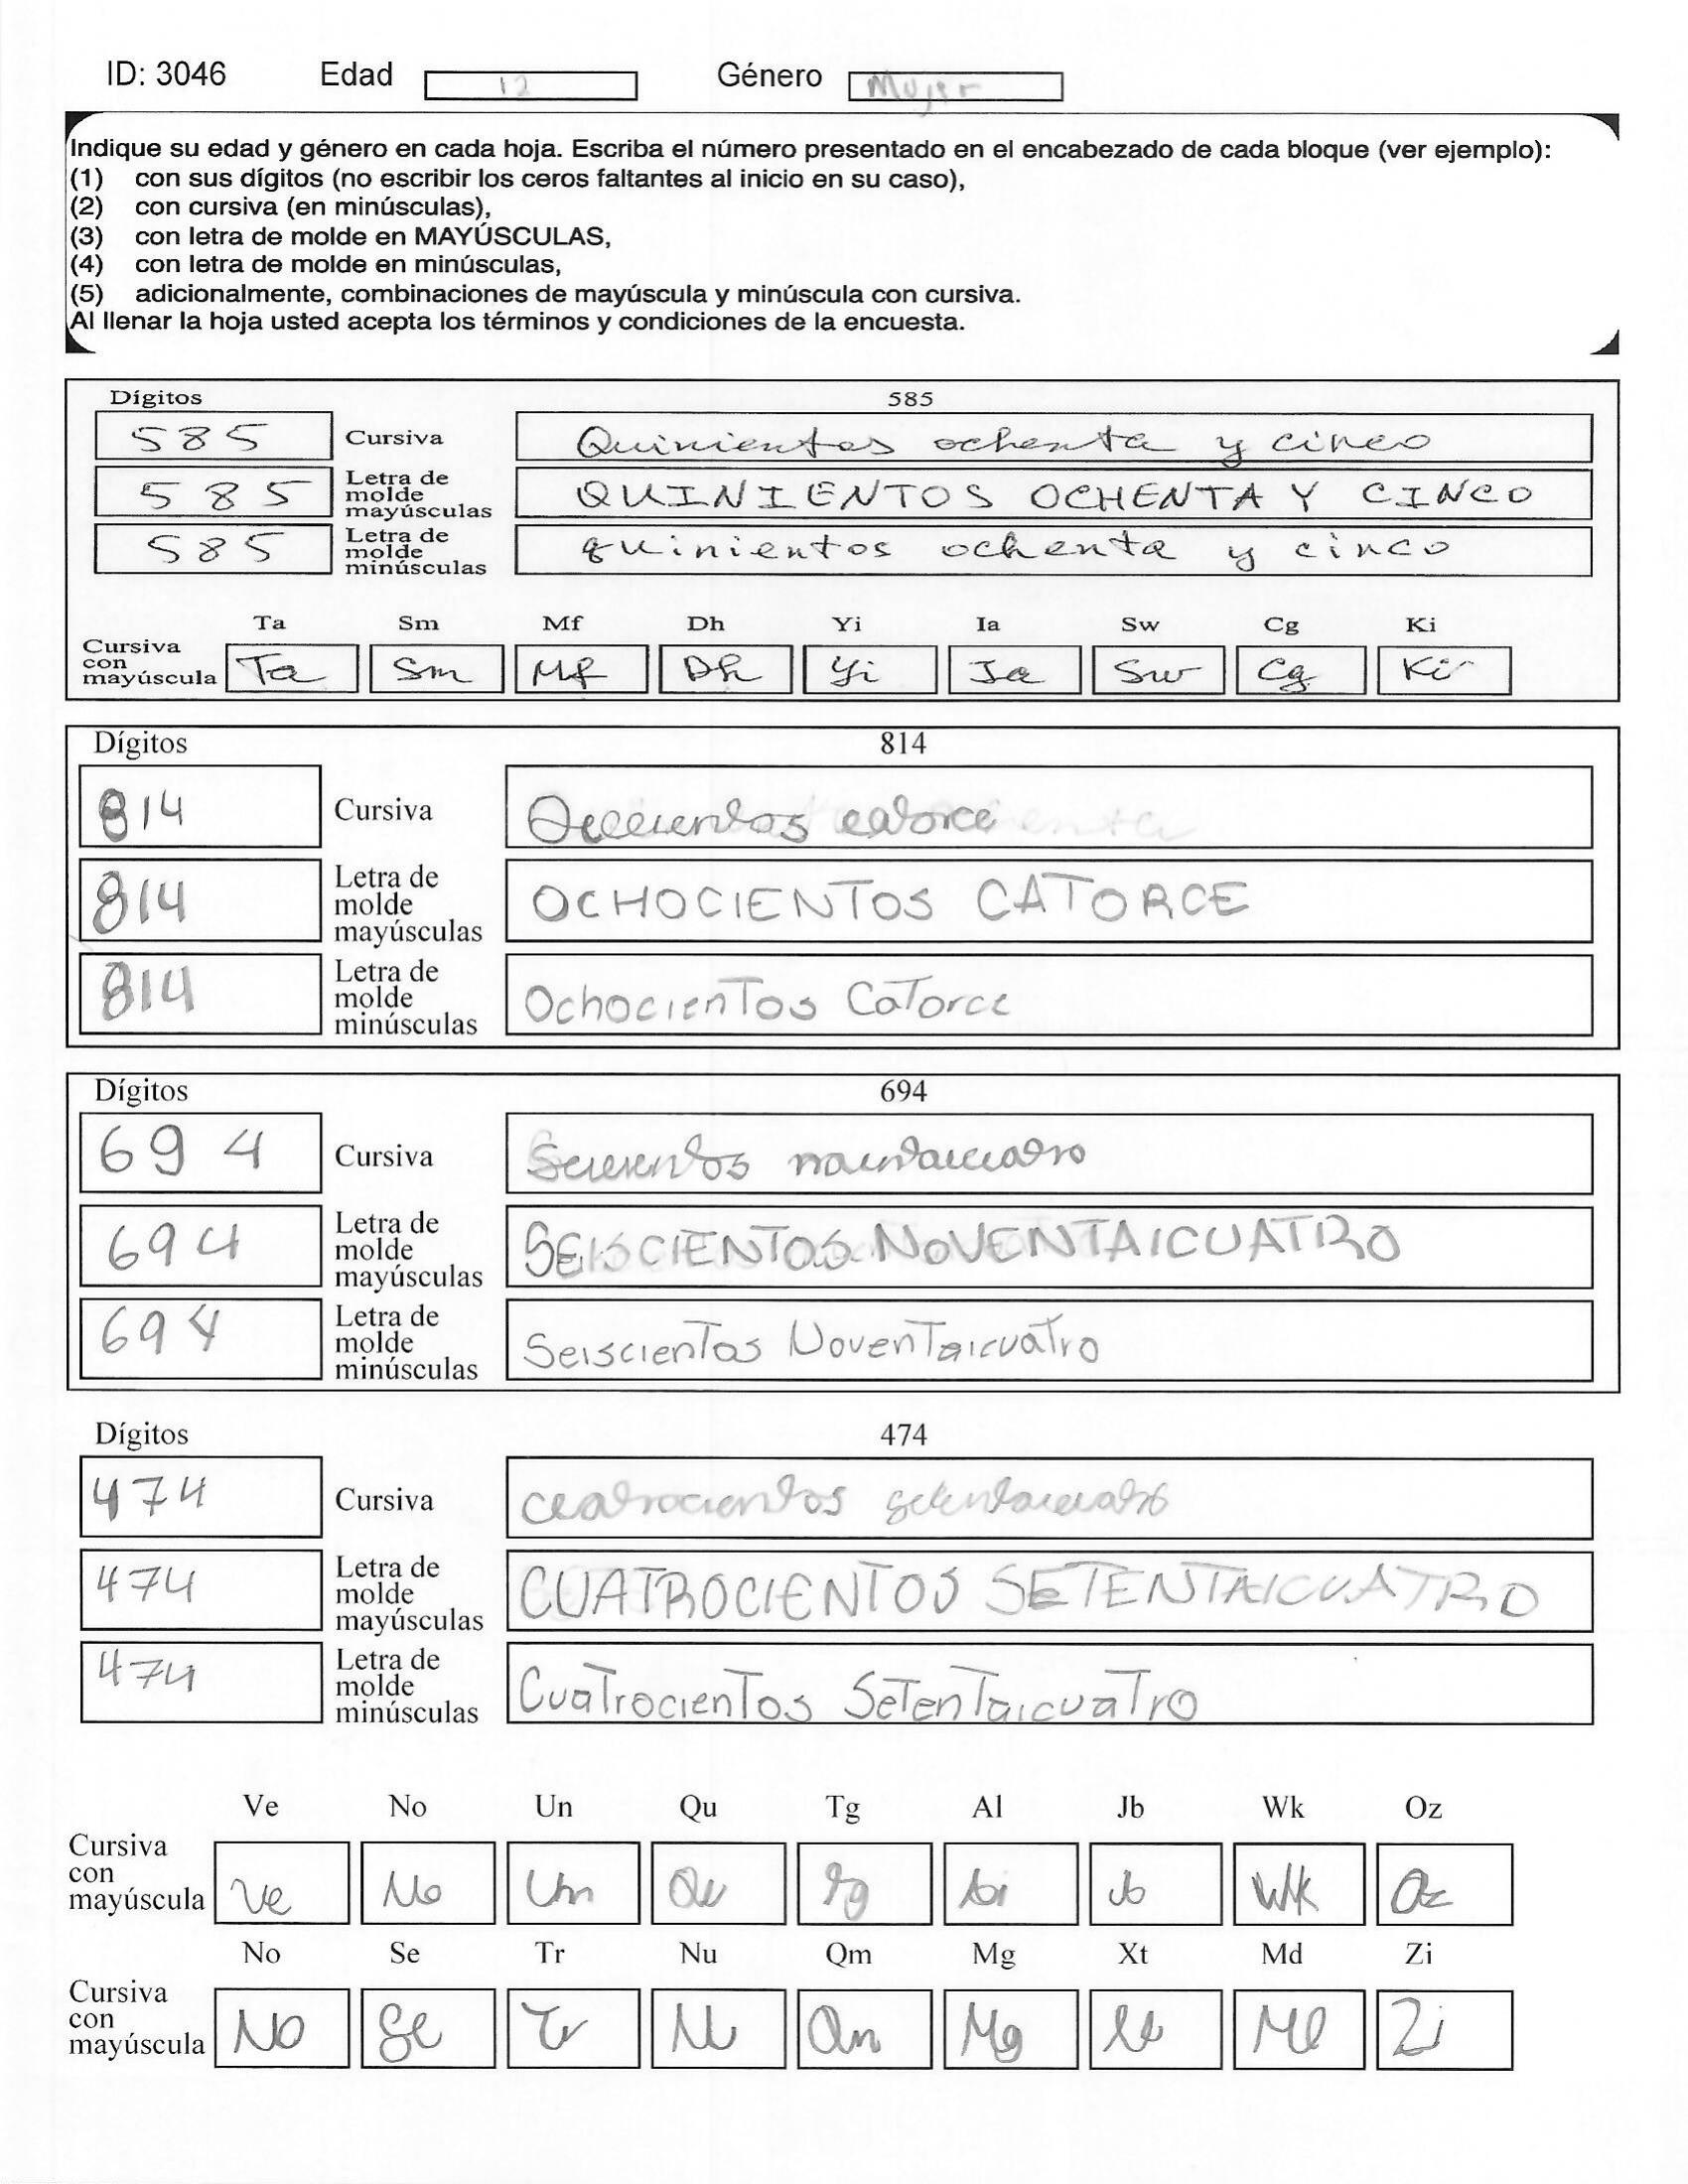 ID: 3046 Edad 12 Género Mujer
Indique su edad y género en cada hoja. Escriba el número presentado en el encabezado de cada bloque (ver ejemplo):
(1) con sus dígitos (no escribir los ceros faltantes al inicio en su caso),
(2) con cursiva (en minúsculas),
(3) con letra de molde en MAYÚSCULAS,
(4) con letra de molde en minúsculas,
(5) adicionalmente, combinaciones de mayúscula y minúscula con cursiva.
Al llenar la hoja usted acepta los términos y condiciones de la encuesta.
Dígitos 585
585 Cursiva Quinientos ochenta y cinco
585 Letra de molde mayúsculas QUINIENTOS OCHENTA Y CINCO
585 Letra de molde minúsculas quinientos ochenta y cinco
Ta Sm Mf Dh Yi Ia Sw Cg Ki
Cursiva con mayúscula Ta Sm Mf Dh Yi Ia Sw Cg Ki
Dígitos 814
814 Cursiva catorce
814 Letra de molde mayúsculas OCHOCIENTOS CATORCE
814 Letra de molde minúsculas Ochocientos Catorce
Dígitos 694
694 Cursiva
694 Letra de molde mayúsculas SEISCIENTOS NOVENTAICUATRO
694 Letra de molde minúsculas Seiscientos Noventaicuatro
Dígitos 474
474 Cursiva cuatrocientos
474 Letra de molde mayúsculas CUATROCIENTOS SETENTAICUATRO
474 Letra de molde minúsculas Cuatrocientos Setentaicuatro
Ve No Un Qu Tg Al Jb Wk Oz
Cursiva con mayúscula Ve No Un Qu Tg Wk Oz
No Se Tr Nu Qm Mg Xt Md Zi
Cursiva con mayúscula No Se Tr Nu Qm Mg Zi